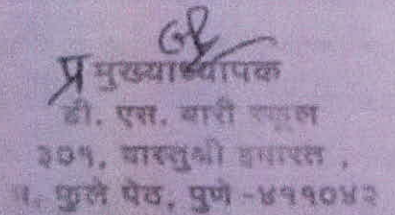 प्र मुख्याध्यापक
डी. एस. बारी स्कूल
३७१, वास्तुश्री इमारत ,
म. फुले पेठ, पुणे -४११०४२